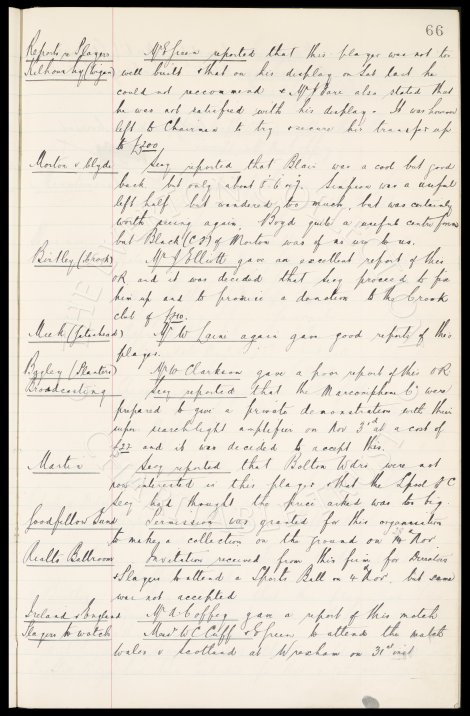 66
Reports re Players Mr E Green reported that this player was not too
Kilhourhy (Wigan) well built & that on his display on Sat last he
could not recommend & Mr J Sare also stated that
he was not satisfied with his display. It was however
left to Chairman to try & secure his transfer up
to £300
Morton v Clyde Secy reported that Blair was a cool but good
back, but only about 5' 6 ins. Simpson was a useful
left half but wandered too much, but was certainly
worth seeing again. Boyd quite a useful centre forward
but Black (C F) of Morton was of no use to us.
Birtley (Crook) Mr J Elliott gave an excellent report of this
OR and it was decided that Secy proceed to fix
him up and to promise a donation to the Crook
club of £10.
Meek (Gateshead) Mr W Laini again gave good reports of this
player.
Bagley (Stanton) Mr W Clarkson gave a poor report of this OR
Broadcasting Secy reported that the Marconiphone Co were
prepared to give a private demonstration with their
super searchlight amplifier on Nov 3rd at a cost of
and it was decided to accept this.
Martin Secy reported that Bolton Wdrs were not
now interested in this player & that the Lpool F C
Secy had thought the price asked was too big
Goodfellow Fund Permission was granted for this organisation
to make a collection on the ground on Nov
Rialto Ballroom Invitation received from this firm for Directors
& Players to attend a Sports Ball on 4th Nov. but same
was not accepted
Ireland v England Mr A Coffey gave a report of this match
Players to watch Messrs W C Cuff & E Green, to attend the match
Wales v Scotland at Wrexham on 31st inst